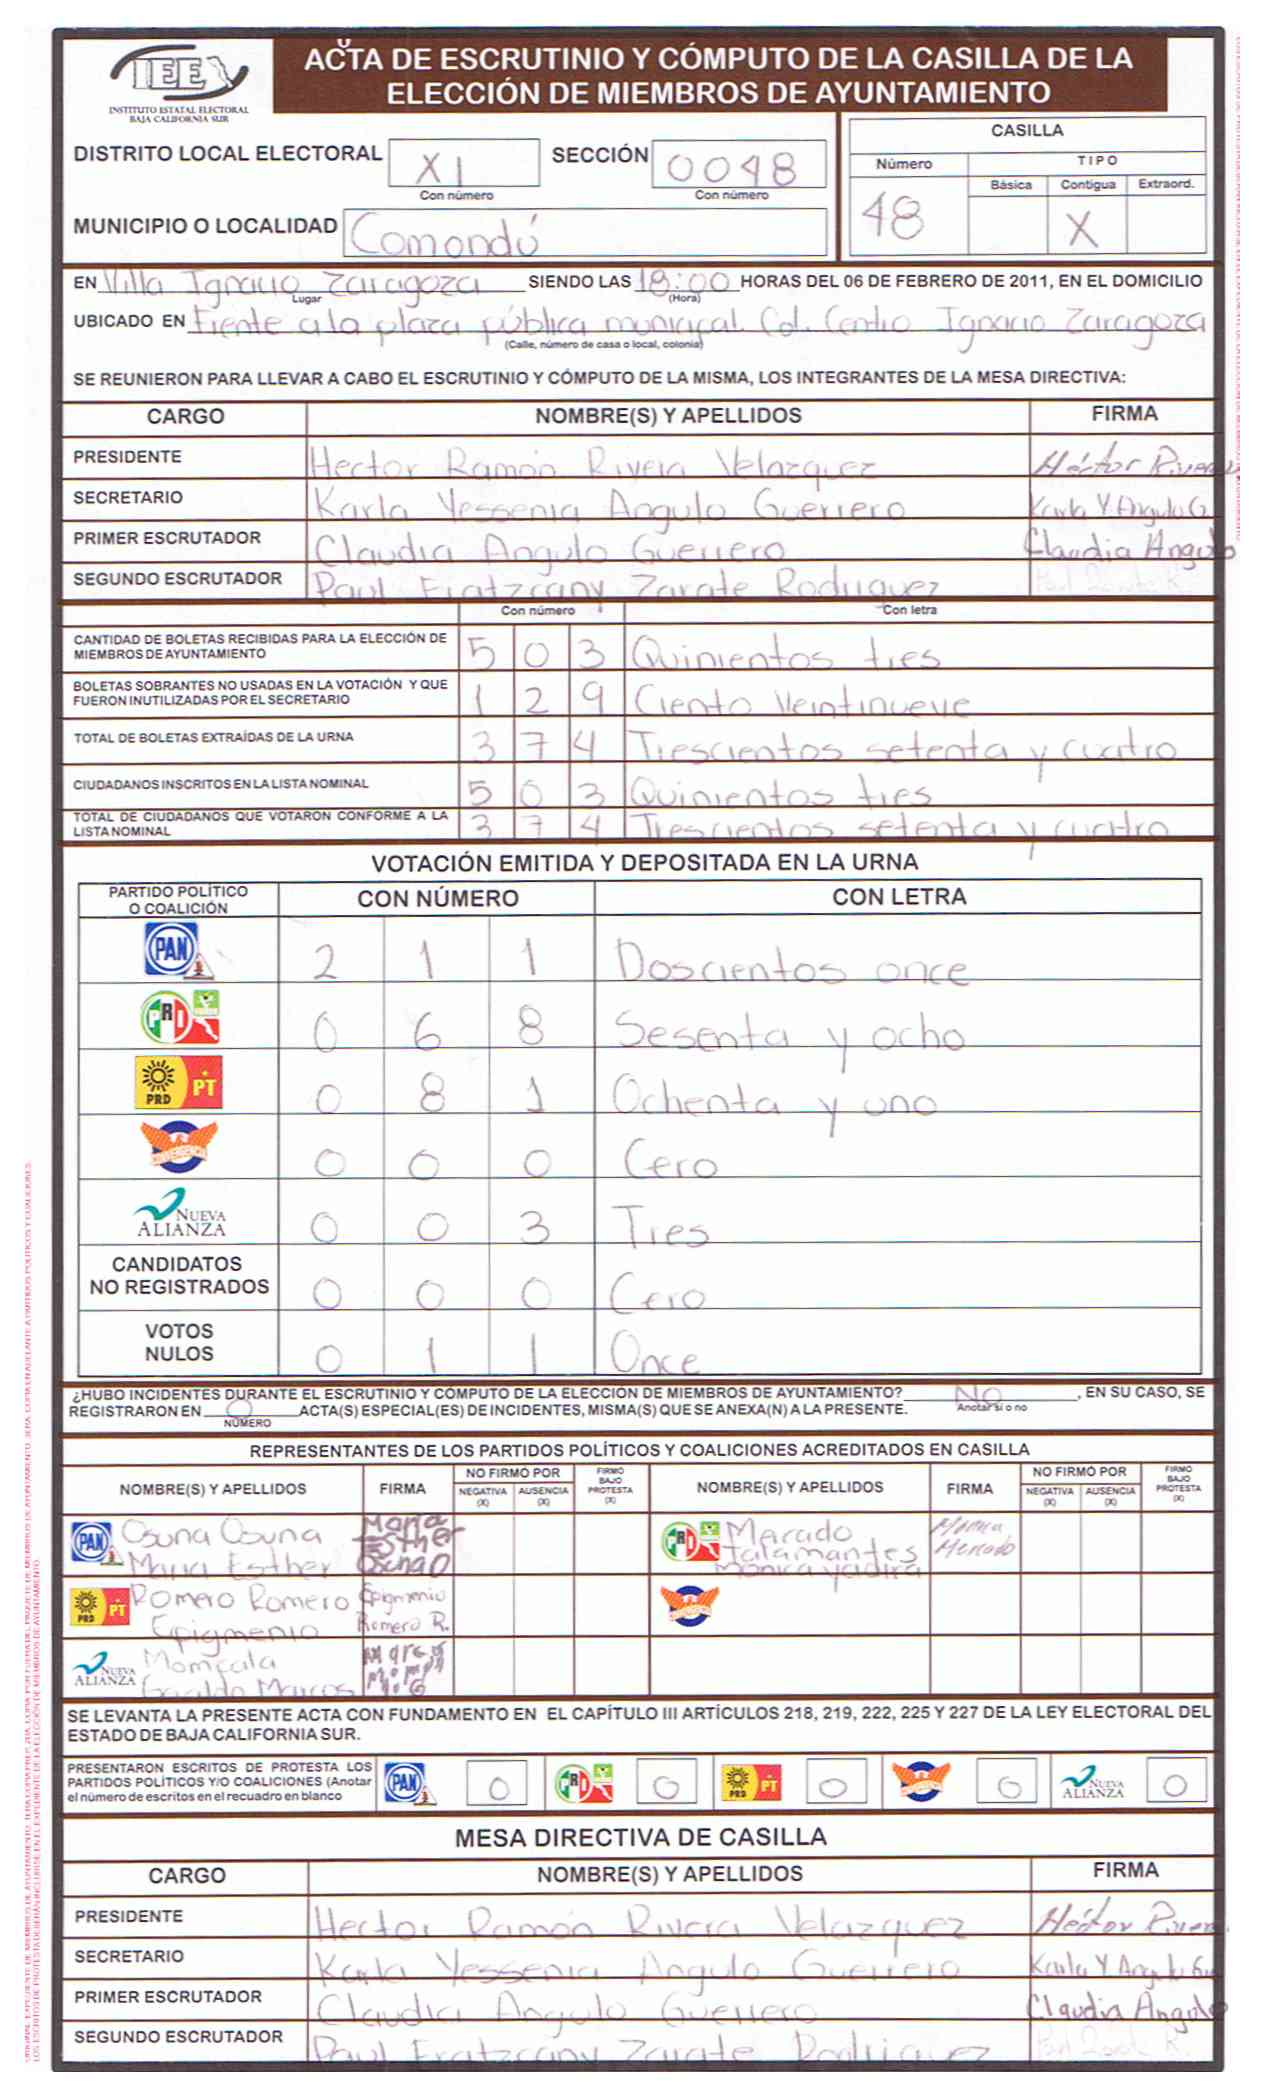 IEE
INSTITUTO ESTATAL ELECTORAL
BAJA CALIFORNIA SUR
ACTA DE ESCRUTINIO Y CÓMPUTO DE LA CASILLA DE LA
ELECCIÓN DE MIEMBROS DE AYUNTAMIENTO
DISTRITO LOCAL ELECTORAL XI SECCIÓN 0048
Con número Con número
MUNICIPIO O LOCALIDAD Comondú
CASILLA
Número TIPO
Básica Contigua Extraord.
48 X
EN Villa Ignacio Zaragoza SIENDO LAS 18:00 HORAS DEL 06 DE FEBRERO DE 2011, EN EL DOMICILIO
Lugar (Hora)
UBICADO EN Frente a la plaza pública municipal. Col. Centro Ignacio Zaragoza
(Calle, número de casa o local, colonia)
SE REUNIERON PARA LLEVAR A CABO EL ESCRUTINIO Y CÓMPUTO DE LA MISMA, LOS INTEGRANTES DE LA MESA DIRECTIVA:
CARGO NOMBRE(S) Y APELLIDOS FIRMA
PRESIDENTE Hector Ramón Rivera Velazquez Héctor Rivera
SECRETARIO Karla Yessenia Angulo Guerrero Karla Y. Angulo G.
PRIMER ESCRUTADOR Claudia Angulo Guerrero Claudia Angulo
SEGUNDO ESCRUTADOR Paul Zarate Rodriguez
Con número Con letra
CANTIDAD DE BOLETAS RECIBIDAS PARA LA ELECCIÓN DE
MIEMBROS DE AYUNTAMIENTO 5 0 3 Quinientos tres
BOLETAS SOBRANTES NO USADAS EN LA VOTACIÓN Y QUE
FUERON INUTILIZADAS POR EL SECRETARIO 1 2 9 Ciento Veintinueve
TOTAL DE BOLETAS EXTRAÍDAS DE LA URNA 3 7 4 Trescientos setenta y cuatro
CIUDADANOS INSCRITOS EN LA LISTA NOMINAL 5 0 3 Quinientos tres
TOTAL DE CIUDADANOS QUE VOTARON CONFORME A LA
LISTA NOMINAL 3 7 4 Trescientos setenta y cuatro
VOTACIÓN EMITIDA Y DEPOSITADA EN LA URNA
PARTIDO POLÍTICO
O COALICIÓN CON NÚMERO CON LETRA
PAN 2 1 1 Doscientos once
PRI 0 6 8 Sesenta y ocho
PRD PT 0 8 1 Ochenta y uno
CONVERGENCIA 0 0 0 Cero
NUEVA ALIANZA 0 0 3 Tres
CANDIDATOS
NO REGISTRADOS 0 0 0 Cero
VOTOS
NULOS 0 1 1 Once
¿HUBO INCIDENTES DURANTE EL ESCRUTINIO Y CÓMPUTO DE LA ELECCIÓN DE MIEMBROS DE AYUNTAMIENTO? No, EN SU CASO, SE
Anotar si o no
REGISTRARON EN 0 ACTA(S) ESPECIAL(ES) DE INCIDENTES, MISMA(S) QUE SE ANEXA(N) A LA PRESENTE.
NÚMERO
REPRESENTANTES DE LOS PARTIDOS POLÍTICOS Y COALICIONES ACREDITADOS EN CASILLA
NOMBRE(S) Y APELLIDOS FIRMA NO FIRMÓ POR NEGATIVA (X) AUSENCIA (X) FIRMO BAJO PROTESTA (X) NOMBRE(S) Y APELLIDOS FIRMA NO FIRMÓ POR NEGATIVA (X) AUSENCIA (X) FIRMO BAJO PROTESTA (X)
PAN Osuna Osuna Maria Esther Maria Esther Osuna O PRI Marcado Talamantes Monica Yadira Monica Mercado
PRD PT Romero Romero Epigmenio Epigmenio Romero R.
NUEVA ALIANZA Marcos
SE LEVANTA LA PRESENTE ACTA CON FUNDAMENTO EN EL CAPÍTULO III ARTÍCULOS 218, 219, 222, 225 Y 227 DE LA LEY ELECTORAL DEL
ESTADO DE BAJA CALIFORNIA SUR.
PRESENTARON ESCRITOS DE PROTESTA LOS
PARTIDOS POLÍTICOS Y/O COALICIONES (Anotar
el número de escritos en el recuadro en blanco
PAN 0 PRI 0 PRD PT 0 0 NUEVA ALIANZA 0
MESA DIRECTIVA DE CASILLA
CARGO NOMBRE(S) Y APELLIDOS FIRMA
PRESIDENTE Hector Ramón Rivera Velazquez Héctor Rivera
SECRETARIO Karla Yessenia Angulo Guerrero Karla Y Angulo
PRIMER ESCRUTADOR Claudia Angulo Guerrero Claudia Angulo
SEGUNDO ESCRUTADOR Paul Zarate Rodriguez